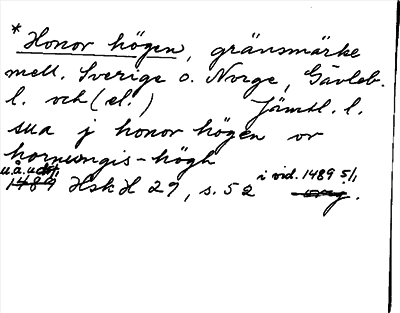 * Honor högen, gränsmärke
mell. Sverige o. Norge, Gävleb.
l. och (el.) Jämtl. l.
sua j honor högen or
hornungis-högh
u.å. u.d. i vid. 1489 5/1
1489 Hsk H 29, s. 52 orig.